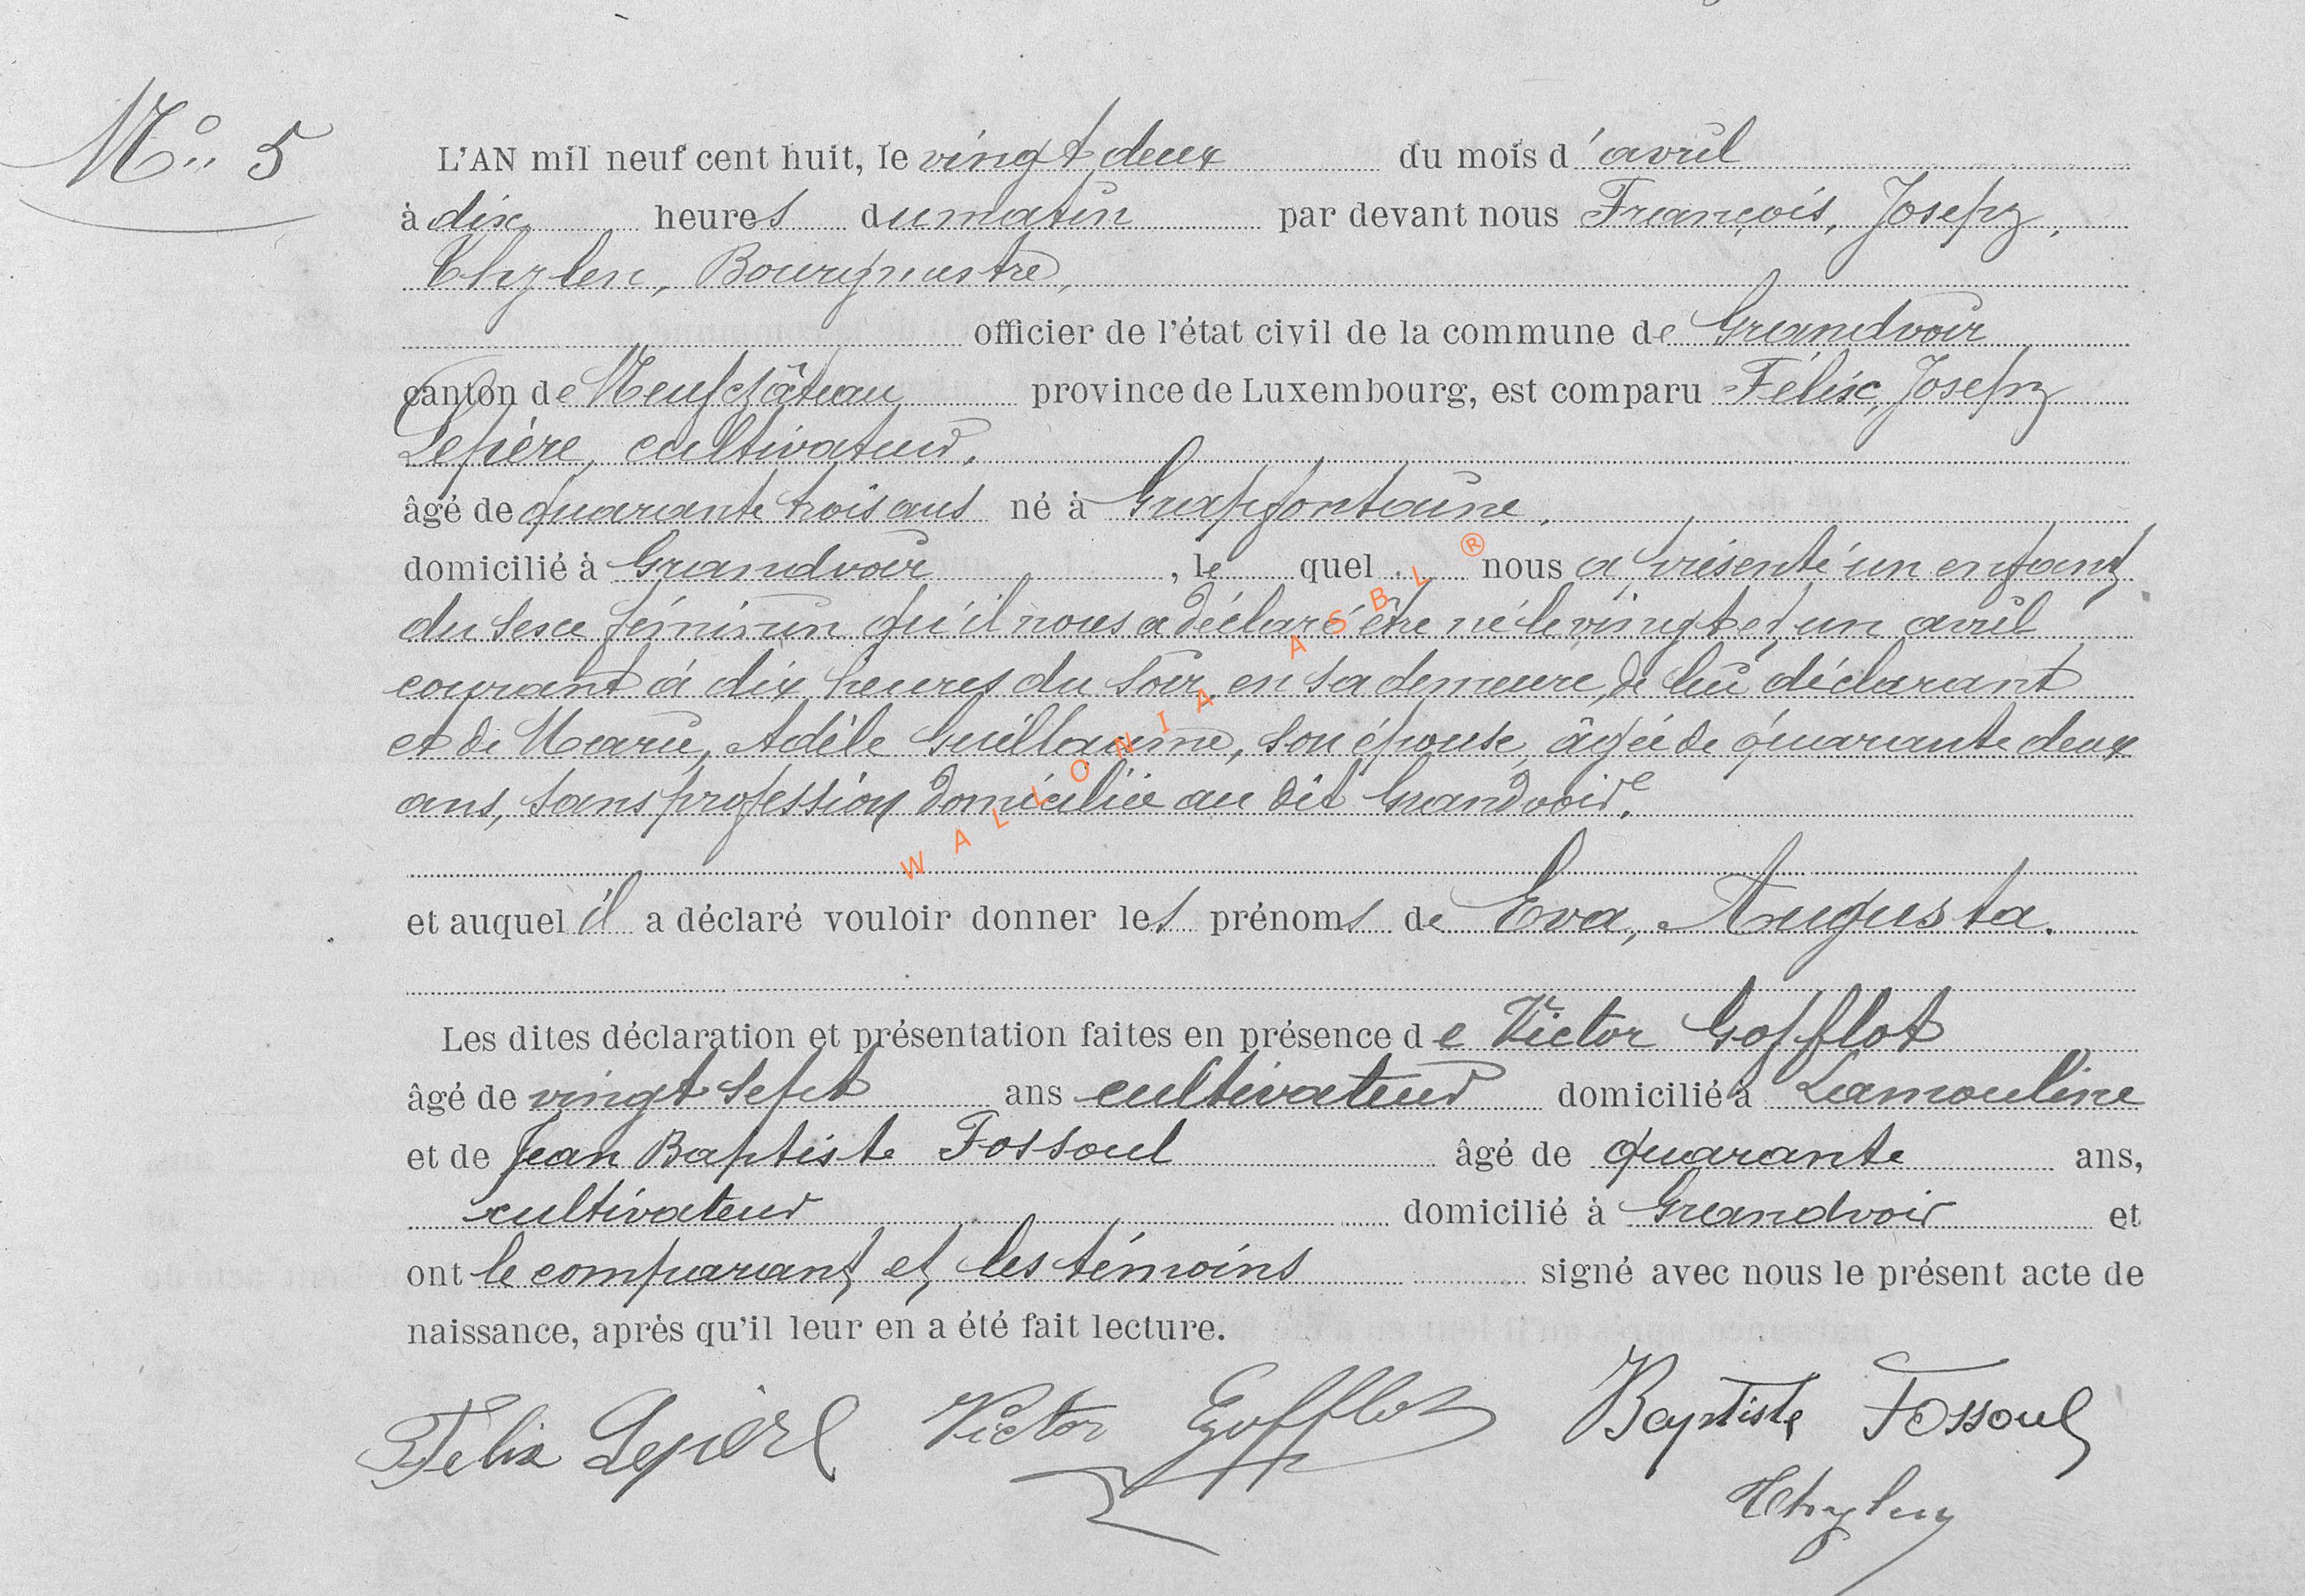 N° 5
L'AN mil neuf cent huit, le vingt deux du mois d'avril
à dix heures du matin par devant nous François, Joseph,
Thylen, Bourgmestre,
officier de l'état civil de la commune de Grandvoir
canton de Neufchâteau province de Luxembourg, est comparu Félix, Joseph
Lepère, cultivateur,
âgé de quarante trois ans né à Grapfontaine,
domicilié à Grandvoir, le quel nous a présenté un enfant
du sexe féminin qu'il nous a déclaré être né le vingt et un avril
courant à dix heures du soir en sa demeure, de lui déclarant
et de Marie, Adèle Guillaume, son épouse, âgée de quarante deux
ans, sans profession domiciliée au dit Grandvoir.
et auquel il a déclaré vouloir donner les prénoms de Eva, Augusta.
Les dites déclaration et présentation faites en présence de Victor Gofflot
âgé de vingt sept ans cultivateur domicilié à Lamouline
et de Jean Baptiste Fossoul âgé de quarante ans,
cultivateur domicilié à Grandvoir et
ont le comparant et les témoins signé avec nous le présent acte de
naissance, après qu'il leur en a été fait lecture.
Félix Lepère Victor Gofflot Baptiste Fossoul
Thylen
WALLONIA ASBL ®